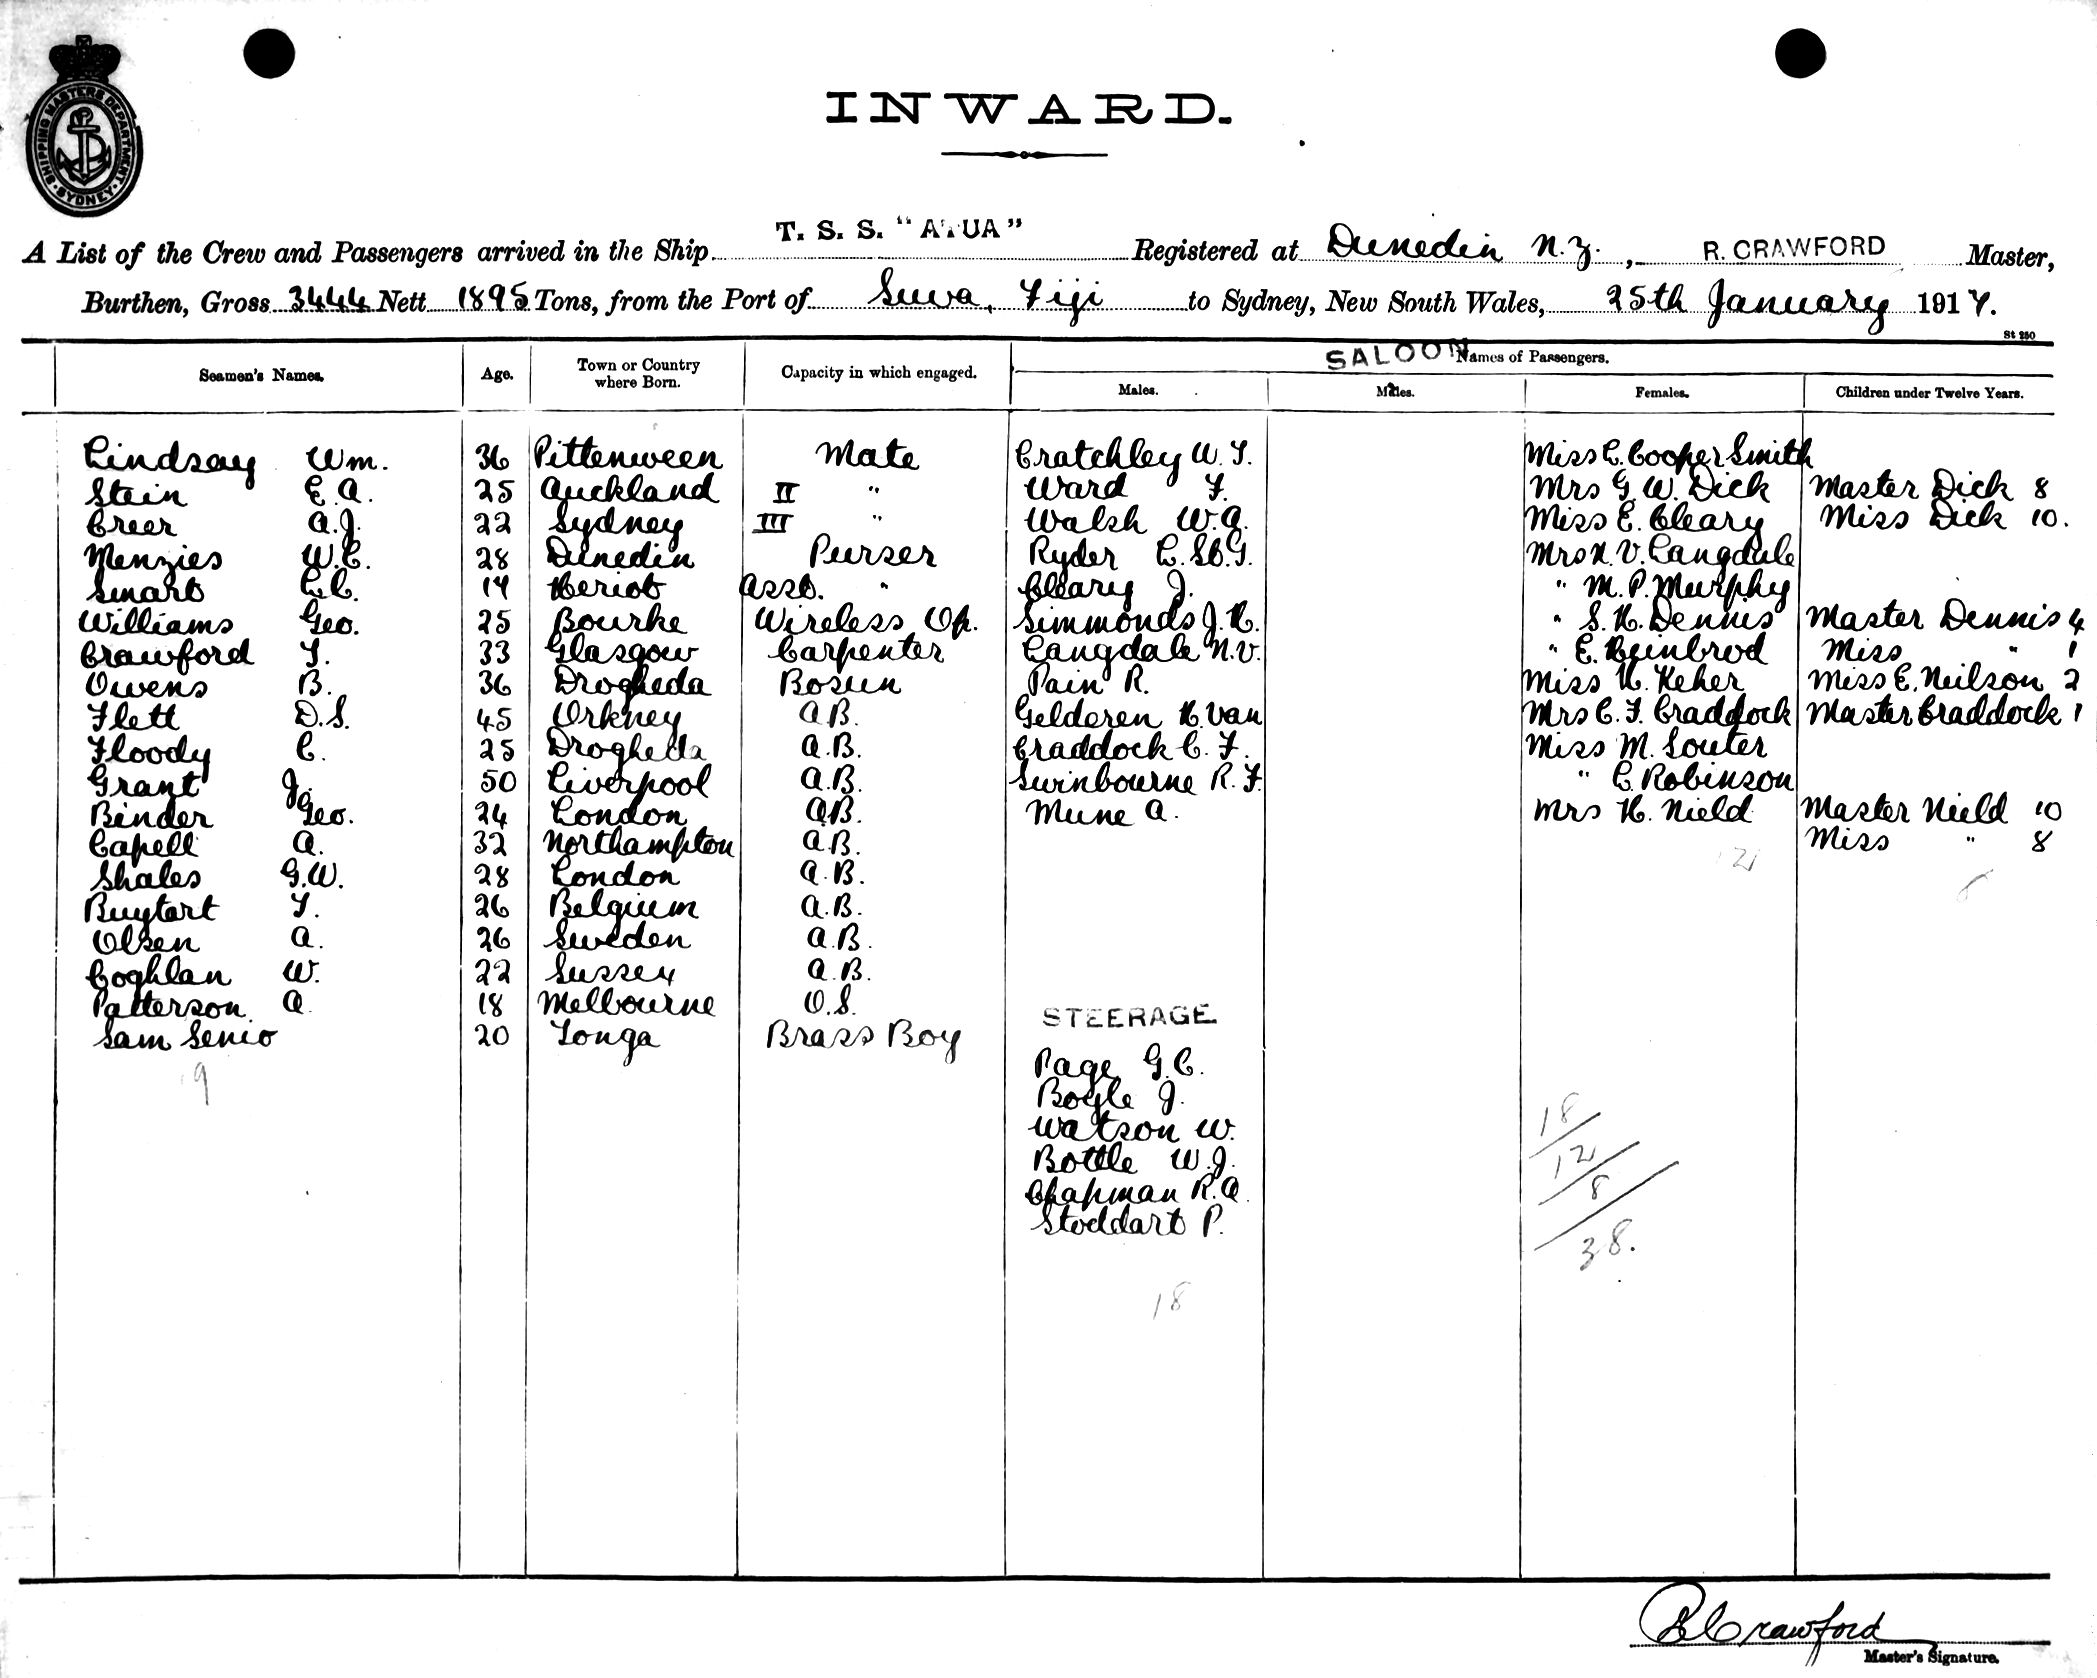 SHIPPING MASTERS DEPARTMENT
SYDNEY
INWARD.
A List of the Crew and Passengers arrived in the Ship T. S. S. "ATUA" Registered at Dunedin N.Z., R. CRAWFORD Master,
Burthen, Gross 3444 Nett 1895 Tons, from the Port of Suva, Fiji to Sydney, New South Wales, 25th January 1917.
St 250
Seamen's Names. Age. Town or Country where Born. Capacity in which engaged. SALOON Names of Passengers.
Males. Males. Females. Children under Twelve Years.
Lindsay Wm. 36 Pittenween Mate Cratchley W. T. Miss E. Cooper Smith
Stein E. A. 25 Auckland II " Ward F. Mrs G. W. Dick Master Dick 8
Creer A. J. 22 Sydney III " Walsh W. A. Miss E. Cleary Miss Dick 10.
Menzies W. C. 28 Dunedin Purser Ryder E. St. G. Mrs N. V. Langdale
Smart 17 Heriot Asst. " Cleary J. " M. P. Murphy
Williams Geo. 25 Bourke Wireless Op. Simmonds J. H. " S. H. Dennis Master Dennis 4
Crawford T. 33 Glasgow Carpenter Langdale N. V. " E. Reinbrod Miss " 1
Owens B. 36 Drogheda Bosun Pain R. Miss H. Keher Miss E. Neilson 2
Flett D. S. 45 Orkney A. B. Gelderen H. Van Mrs C. F. Craddock Master Craddock 1
Floody C. 25 Drogheda A. B. Craddock C. F. Miss M. Souter
Grant J. 50 Liverpool A. B. Swinbourne R. F. " E. Robinson
Binder Geo. 24 London A. B. Mune A. Mrs H. Nield Master Nield 10
Capell A. 32 Northampton A. B. Miss " 8
Shales G. W. 28 London A. B.
Buytart T. 26 Belgium A. B.
Olsen A. 26 Sweden A. B.
Coghlan W. 22 Sussex A. B.
Patterson A. 18 Melbourne O. S.
Sam Senio 20 Tonga Brass Boy
STEERAGE
Page G. C.
Boyle J.
Watson W.
Bottle W. J.
Chapman R. A.
Stoddart P.
18
12
8
38.
18
R Crawford
Master's Signature.